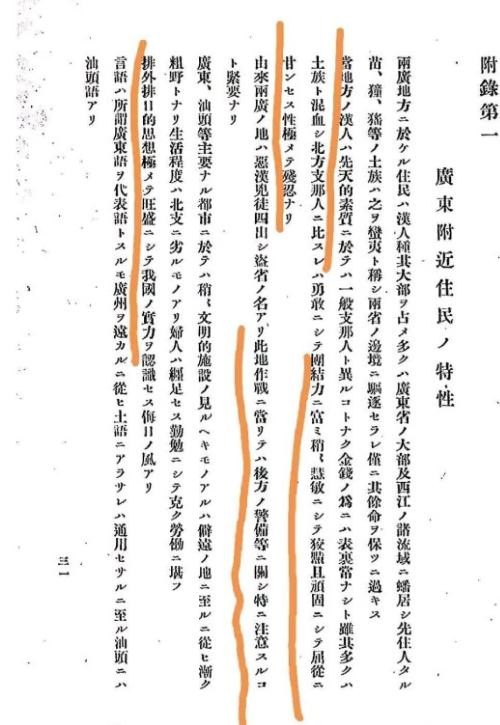 附錄第一
廣東附近住民ノ特性
兩廣地方ニ於ケル住民ハ漢人種其大部ヲ占メ多クハ廣東省ノ大部及西江ノ諸流域ニ蟠居シ先住人タル
苗、獞、猺等ノ土族ハ之ヲ蠻夷ト稱シ兩省ノ邊境ニ驅逐セラレ僅ニ其餘命ヲ保ツニ過キス
當地方ノ漢人ハ先天的素質ニ於テハ一般支那人ト異ルコトナク金錢ノ爲ニハ表裏常ナシト雖其多クハ
土族ト混血シ北方支那人ニ比スレハ勇敢ニシテ團結力ニ富ミ稍〻慧敏ニシテ狡黠且頑固ニシテ屈從ニ
甘ンセス性極メテ殘忍ナリ
由來兩廣ノ地ハ惡漢兇徒四出シ盜省ノ名アリ此地作戰ニ當リテハ後方ノ警備等ニ關シ特ニ注意スルコ
ト緊要ナリ
廣東、汕頭等主要ナル都市ニ於テハ稍〻文明的施設ノ見ルヘキモノアルハ僻遠ノ地ニ至ルニ從ヒ漸ク
粗野トナリ生活程度ハ北支ニ劣ルモノアリ婦人ハ纏足セス勤勉ニシテ克ク勞働ニ堪フ
排外排日的思想極メテ旺盛ニシテ我國ノ實力ヲ認識セス侮日ノ風アリ
言語ハ所謂廣東語ヲ代表語トスルモ廣州ヲ遠カルニ從ヒ土語ニアラサレハ通用セサルニ至ル汕頭ニハ
汕頭語アリ
三一